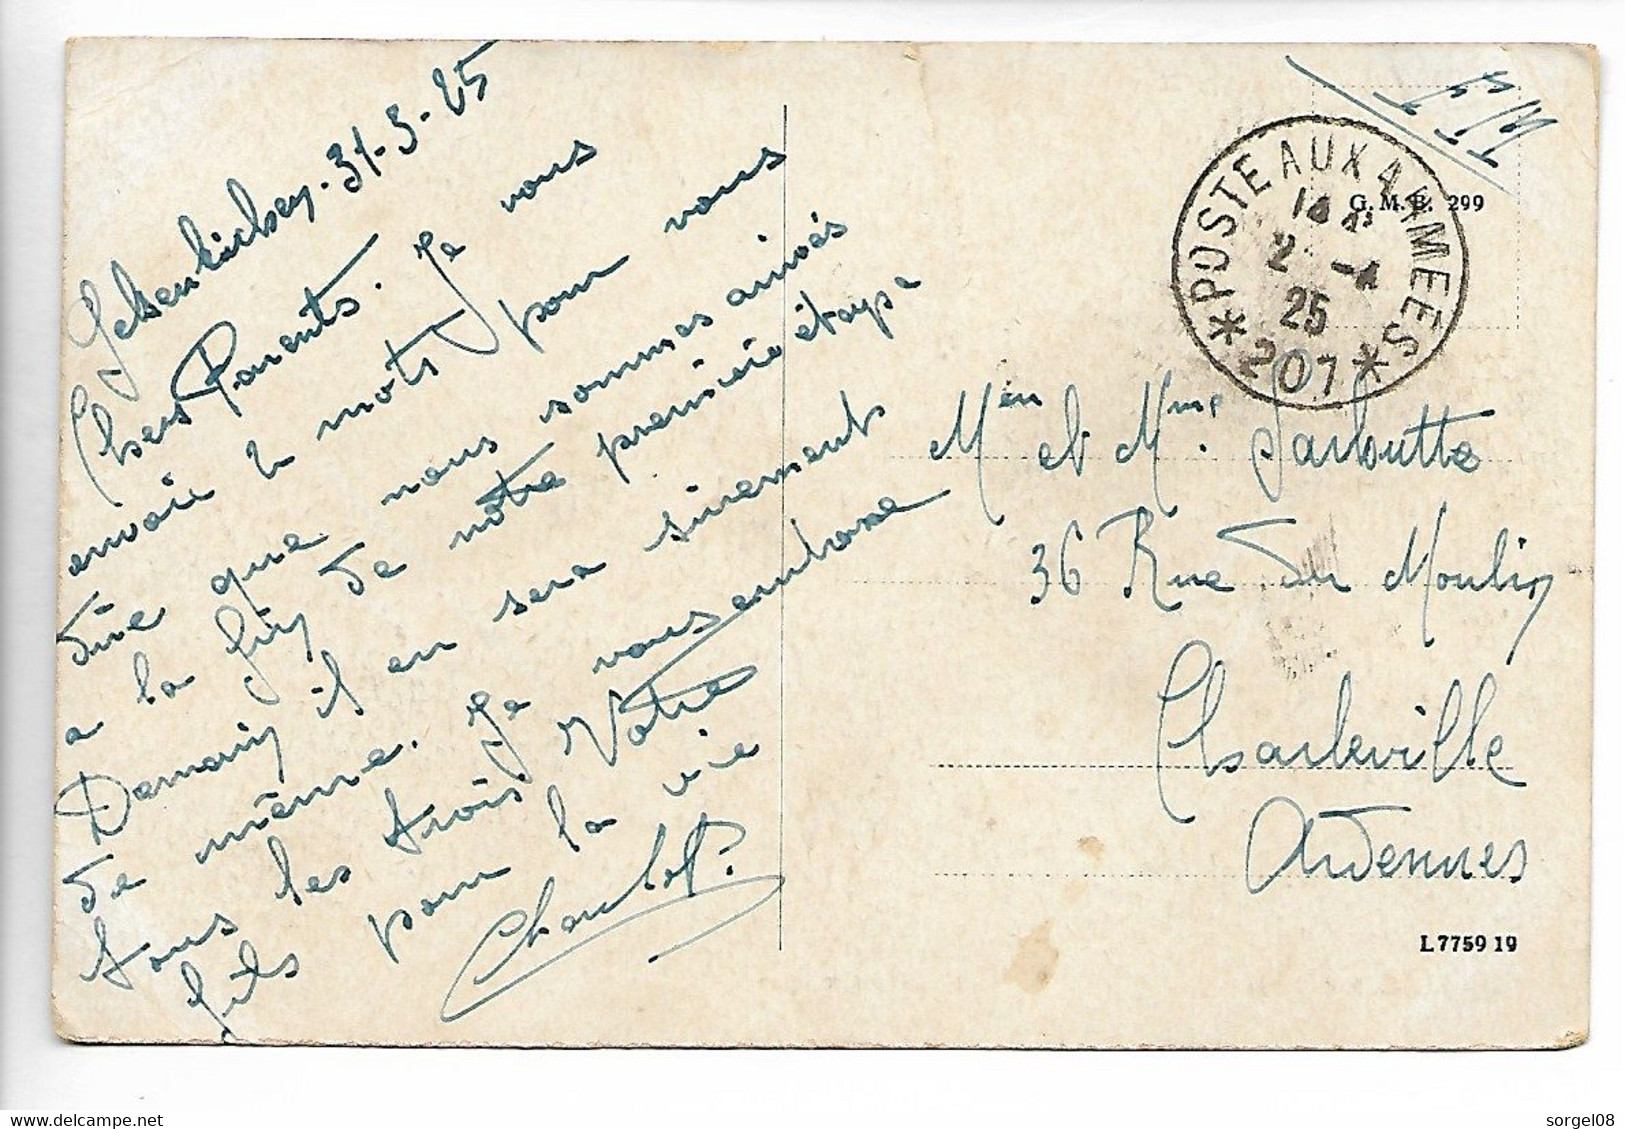 Gelsenkirchen. 31-3-25
Chers Parents. Je vous
envoie 2 mots pour vous
dire que nous sommes arrivés
a la fin de notre première étape
Demain il en sera surement
de même. Je vous embrasse
tous les trois Votre
fils pour la vie
Charlot.
F M
POSTE AUX ARMEES
2 -4
25
* 207 *
G. M. B. 299
Mr et Mme Sarloutte
36 Rue du Moulin
Charleville
Ardennes
L 7759 19
sorgel08